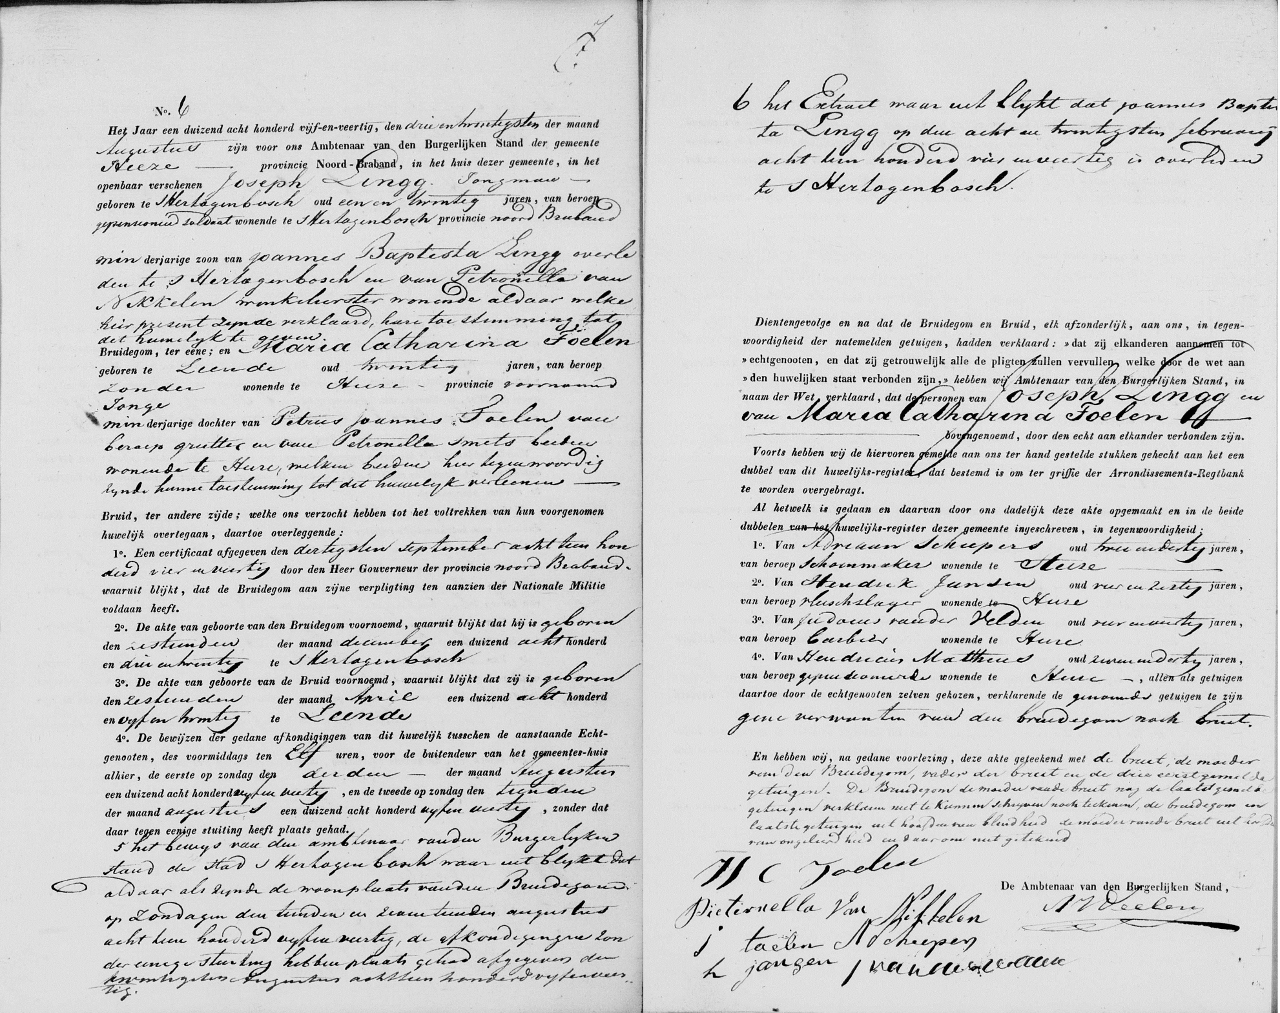 7
No. 6
Het Jaar een duizend acht honderd vijf-en-veertig, den drie en twintigsten der maand
Augustus zijn voor ons Ambtenaar van den Burgerlijken Stand der gemeente
Heeze provincie Noord-Braband, in het huis dezer gemeente, in het
openbaar verschenen Joseph Lingg. Jongman
geboren te s'Hertogenbosch oud een en twintig jaren, van beroep
gepensioneerd soldaat wonende te s'Hertogenbosch provincie noord Braband
minderjarige zoon van Joannes Baptista Lingg overle
den te s'Hertogenbosch en van Petronella van
Nikkelen winkelierster wonende aldaar welke
hier present zynde verklaard, hare toestemming tot
dit huwelyk te geven.
Bruidegom, ter eene; en Maria Catharina Foelen
geboren te Leende oud twintig jaren, van beroep
zonder wonende te Heeze provincie voornoemd
Jonge
minderjarige dochter van Petrus Joannes Foelen van
beroep grutter en van Petronella Smets beiden
wonende te Heeze, welken beiden hier tegenwoordig
zynde hunne toestemming tot dit huwelyk verleenen
Bruid, ter andere zijde; welke ons verzocht hebben tot het voltrekken van hun voorgenomen
huwelijk overtegaan, daartoe overleggende:
1o. Een certificaat afgegeven den dertigsten september achttien hon
derd vier en veertig door den Heer Gouverneur der provincie noord Braband
waaruit blijkt, dat de Bruidegom aan zijne verpligting ten aanzien der Nationale Militie
voldaan heeft.
2o. De akte van geboorte van den Bruidegom voornoemd, waaruit blijkt dat hij is geboren
den zestienden der maand december een duizend acht honderd
en drie en twintig te s'Hertogenbosch
3o. De akte van geboorte van de Bruid voornoemd, waaruit blijkt dat zij is geboren
den zestienden der maand April een duizend acht honderd
en vyf en twintig te Leende
4o. De bewijzen der gedane afkondigingen van dit huwelijk tusschen de aanstaande Echt-
genooten, des voormiddags ten Elf uren, voor de buitendeur van het gemeentes-huis
alhier, de eerste op zondag den derden der maand Augustus
een duizend acht honderd vyf en veertig, en de tweede op zondag den tienden
der maand augustus een duizend acht honderd vyf en veertig, zonder dat
daar tegen eenige stuiting heeft plaats gehad.
5 het bewys van den ambtenaar vanden Burgerlyken
stand der stad s'Hertogenbosch waar uit blykt dat
aldaar als zynde de woonplaats vanden Bruidegom
op zondagen den tienden en zeventienden augustus
acht tien honderd vyf en veertig, de afkondigingen zon
der eenige stuiting hebben plaats gehad afgegeven den
twintigsten Augustus achttien honderd vyf en veer
tig.
6 het Extract waar uit blykt dat Joannes Baptis
ta Lingg op den acht en twintigsten february
acht tien honderd vier en veertig is overleden
te s'Hertogenbosch.
Dientengevolge en na dat de Bruidegom en Bruid, elk afzonderlijk, aan ons, in tegen-
woordigheid der natemelden getuigen, hadden verklaard: »dat zij elkanderen aannemen tot
»echtgenooten, en dat zij getrouwelijk alle de pligten zullen vervullen, welke door de wet aan
»den huwelijken staat verbonden zijn,» hebben wij Ambtenaar van den Burgerlijken Stand, in
naam der Wet, verklaard, dat de personen van Joseph Lingg en
van Maria Catharina Foelen
bovengenoemd, door den echt aan elkander verbonden zijn.
Voorts hebben wij de hiervoren gemelde aan ons ter hand gestelde stukken gehecht aan het een
dubbel van dit huwelijks-register, dat bestemd is om ter griffie der Arrondissements-Regtbank
te worden overgebragt.
Al hetwelk is gedaan en daarvan door ons dadelijk deze akte opgemaakt en in de beide
dubbelen van het huwelijks-register dezer gemeente ingeschreven, in tegenwoordigheid;
1o. Van Adriaan Scheepers oud twee en dertig jaren,
van beroep Schoenmaker wonende te Heeze
2o. Van Hendrik Jansen oud vier en zestig jaren,
van beroep vleeschslager wonende te Heeze
3o. Van Judocus vander Velden oud vier en veertig jaren,
van beroep Barbier wonende te Heeze
4o. Van Hendricus Mattheus oud jaren,
van beroep gepensioneerde wonende te Heeze, allen als getuigen
daartoe door de echtgenooten zelven gekozen, verklarende de genoemde getuigen te zijn
gene verwanten van den bruidegom noch bruid.
En hebben wij, na gedane voorlezing, deze akte geteekend met de bruid, de moeder
van den Bruidegom, vader der bruid en de drie eerstgemelde
getuigen. De Bruidegom de moeder vande bruid nog de laatstgemelde
getuigen verklaren niet te kunnen schryven noch teekenen, de bruidegom en
laatste getuigen uit hoofde van blindheid de moeder vande bruid uit hoofde
van ongeleerdheid en daarom niet geteekend
M C Foelen
De Ambtenaar van den Burgerlijken Stand,
Pieternella Van Nikkelen
j Foelen A Scheepers
h jansen